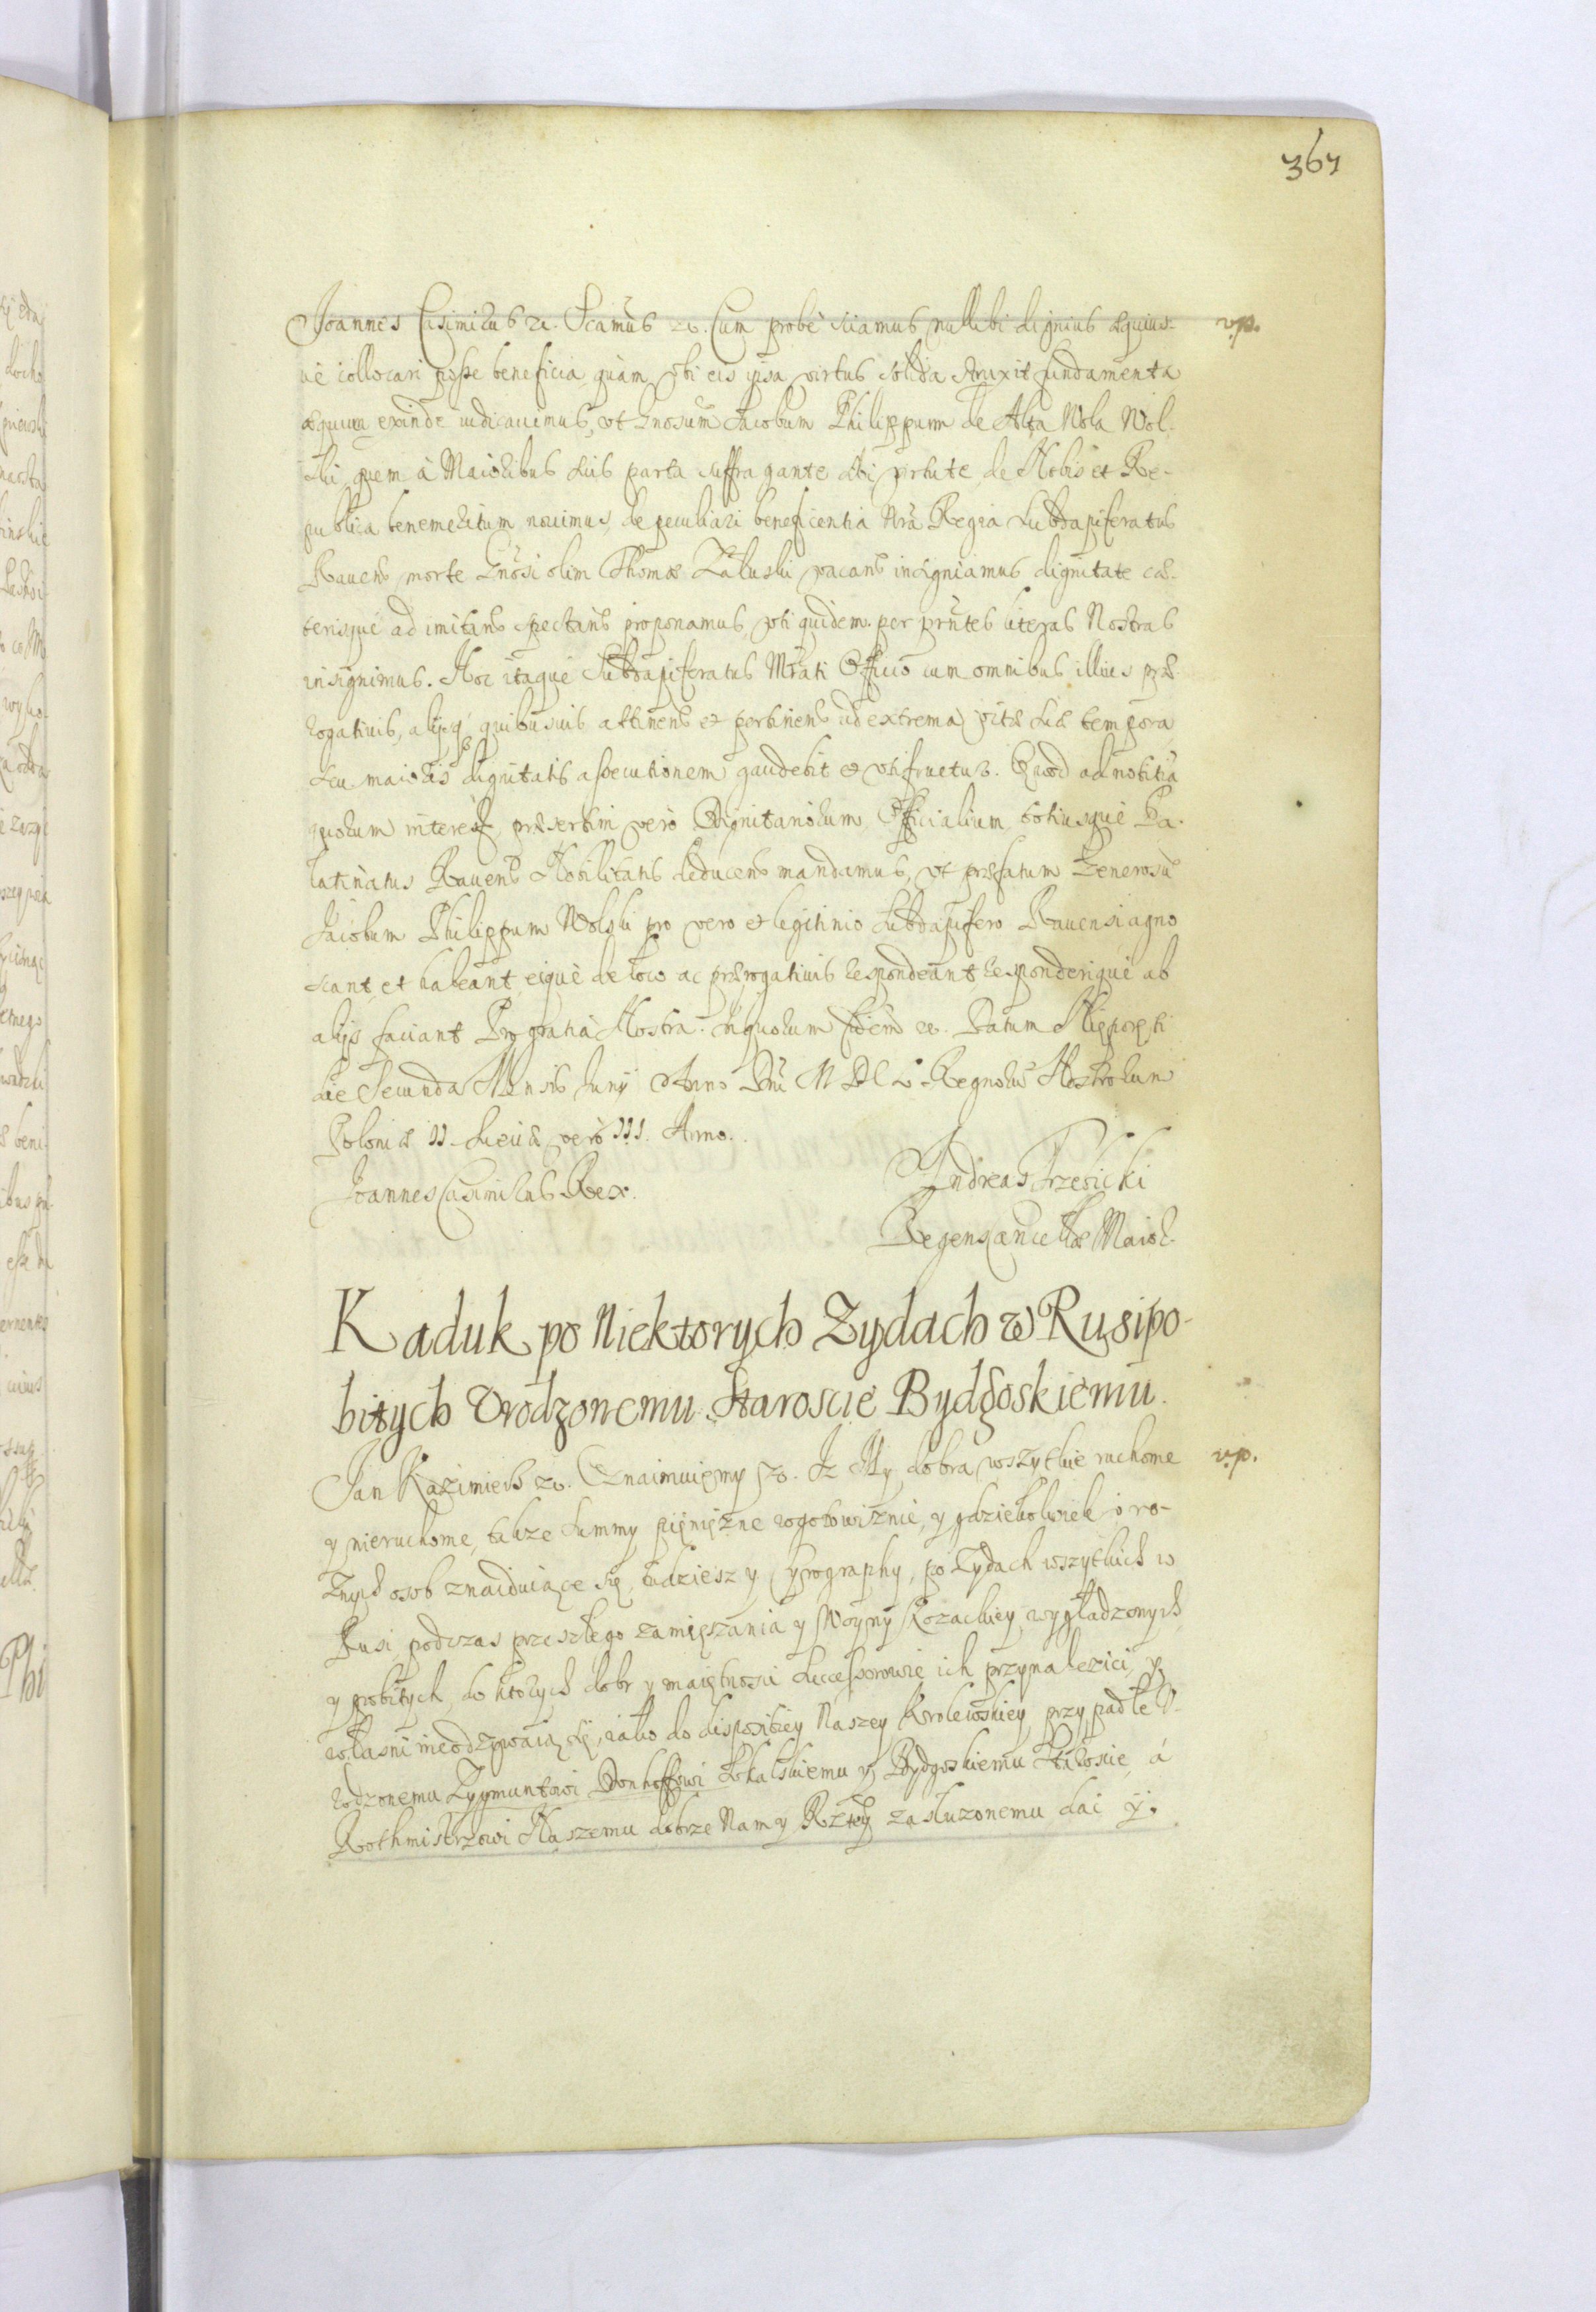 367
Joannes Casimirus etc. Seamus etc. Cum probè sciamus nullibi dignius æquius- v.p.
uè collocari posse beneficia quàm ubi eis ipsa virtus solida struxit fundamenta
æquum exinde iudicauimus, ut Gnosum Jacobum Philippum de Alta Wola Wol-
ski quem à Maioribus suis parta suffragante sibi virtute de Nobis et Re-
publica benemeritum nouimus, de peculiari beneficentia Nrã Regia Subdapiferatus
Rauens morte Gnosi olim Thomæ Załuski vacans insigniamus dignitate cæ-
terisque ad imitans spectans proponamus, uti quidem per pñtes literas Nostras
insignimus. Hoc itaque Subdapiferatus Mrãti Officio cum omnibus illius præ-
rogatiuis, alijsq quibusuis attinens et pertinens ad extrema vitæ suæ tempora
seu maioris dignitatis assecutionem gaudebit et utifruetur. Quod ad notitiã
quorum interest, præsertim verò Dignitariorum Officialium totiusque Pa-
latinatus Rauens Nobilitatis deducens mandamus, ut præfatum Generosũ
Jacobum Philippum Wolski pro vero et legitimo Subdapifero Rauensi agno
scant et habeant, eique de loco ac prærogatiuis respondeant responderique ab
alijs faciant Pro gratia Nostra. In quorum fidem etc. Datum Nieporęti
die Secunda Mensis Junij Anno Dni M DC L. Regnorũ Nostrorum
Poloniæ II. Sueciæ verò III. Anno.
Joannes Casimirus Rex. Andreas Trzebicki
Regens Cancellæ Maior.
Kaduk po Niektorych Zydach w Rusi po-
bitych Vrodzonemu Staroscie Bydgoskiemu.
Jan Kazimierz etc. Oznaimuięmy etc. Jz My dobra wszytkie ruchome v.p.
y nieruchome, takze Summy pięniężne w gotowiznie, y gdziekolwiek ó ro-
znych osob znaiduiące się, tudziesz y Cyrography, po Zydach wszytkich w
Rusi podczas przeszłego zamięszania y Woyny Kozackiey wygładzonych
y pobitych, do ktorych dobr y maiętnosci Successorowie ich przynalezici, y
własni nieodzywaią się, iako do dispositiey Naszey Krolewskiey przypadłe V-
rodzonemu Zygmuntowi Donhoffowi Sokalskiemu y Bydgoskiemu Staroscie, á
Rothmistrzowi Naszemu dobrze Nam y Rzptey zasłuzonemu dac y.